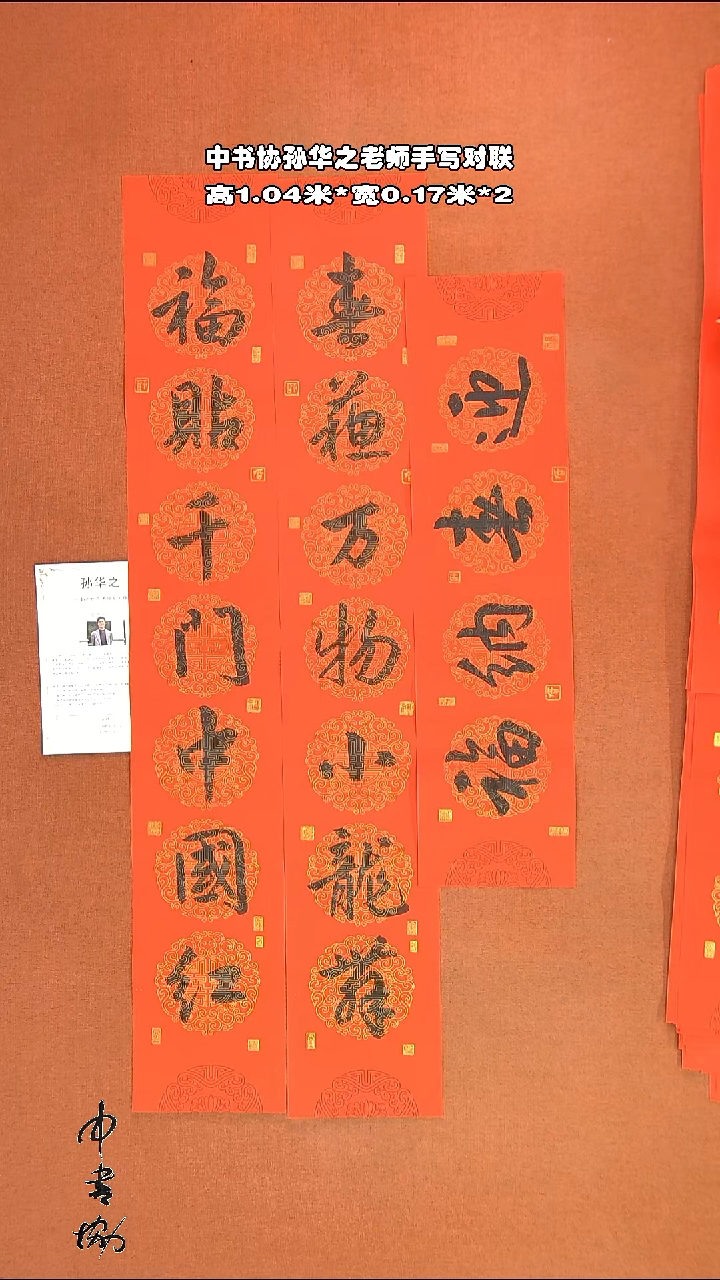 中书协孙华之老师手写对联
高1.04米*宽0.17米*2
春蕴万物小龍舞
福貼千門中國红
迎春纳福
孙华之
中書協